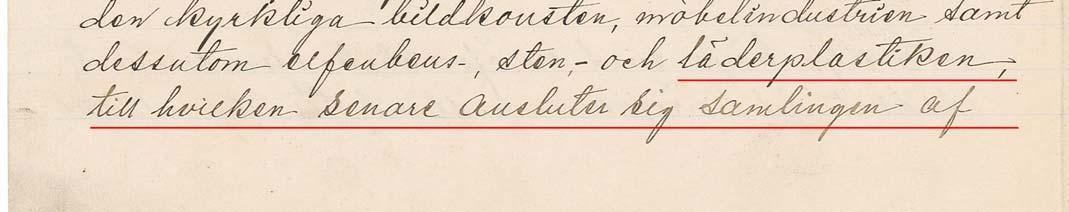 den kyrkliga bildkonsten, möbelindustrien samt
dessutom elfenbens-, sten- och läderplastiken,
till hvilken senare ansluter sig samlingen af